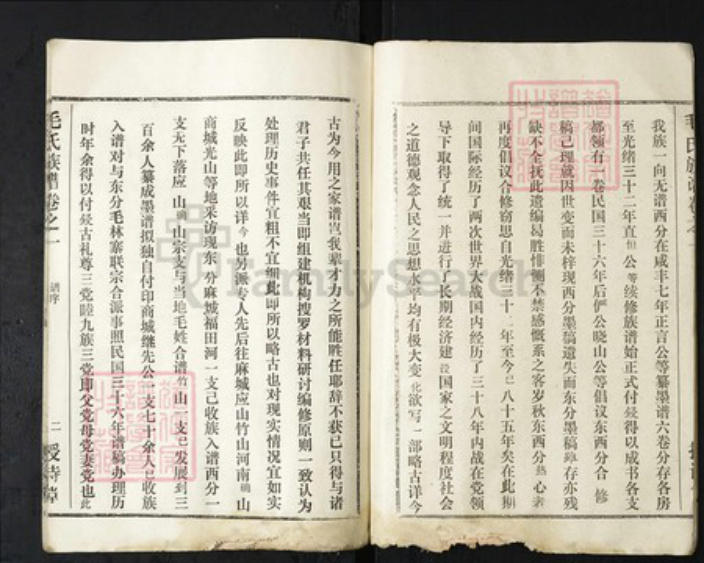 我族一向无谱西分在咸丰七年正言公等纂墨谱六卷分存各房
至光绪三十二年直恒公等续修族谱始正式付梓得以成书各支
都领有一卷民国三十六年后俨公晓山公等倡议东西分合修
稿已理就因世变而未梓现西分墨稿遗失而东分墨稿虽存亦残
缺不全抚此遗编曷胜悱恻不禁感慨系之客岁秋东西分热心者
再度倡议合修窃思自光绪三十二年至今已八十五年矣在此期
间国际经历了两次世界大战国内经历了三十八年内战在党领
导下取得了统一并进行了长期经济建设国家之文明程度社会
之道德观念人民之思想水平均有极大变化欲写一部略古详今
古为今用之家谱岂我辈才力之所能胜任耶辞不获已只得与诸
君子共任其艰当即组建机构搜罗材料研讨编修原则一致认为
处理历史事件宜粗不宜细此即所以略古也对现实情况宜如实
反映此即所以详今也另派专人先后往麻城应山竹山河南确山
商城光山等地采访现东分麻城福田河一支已收族入谱西分一
支无下落应山确山宗支与当地毛姓合谱竹山一支已发展到三
百余人纂成墨谱拟独自付印商城继先公一支七十余人已收族
入谱对与东分毛林寨联宗合派事照民国三十六年谱稿办理历
时年余得以付梓古礼尊三党睦九族三党即父党母党妻党也此
毛氏族谱卷之一
谱序
二
授诗堂
FamilySearch